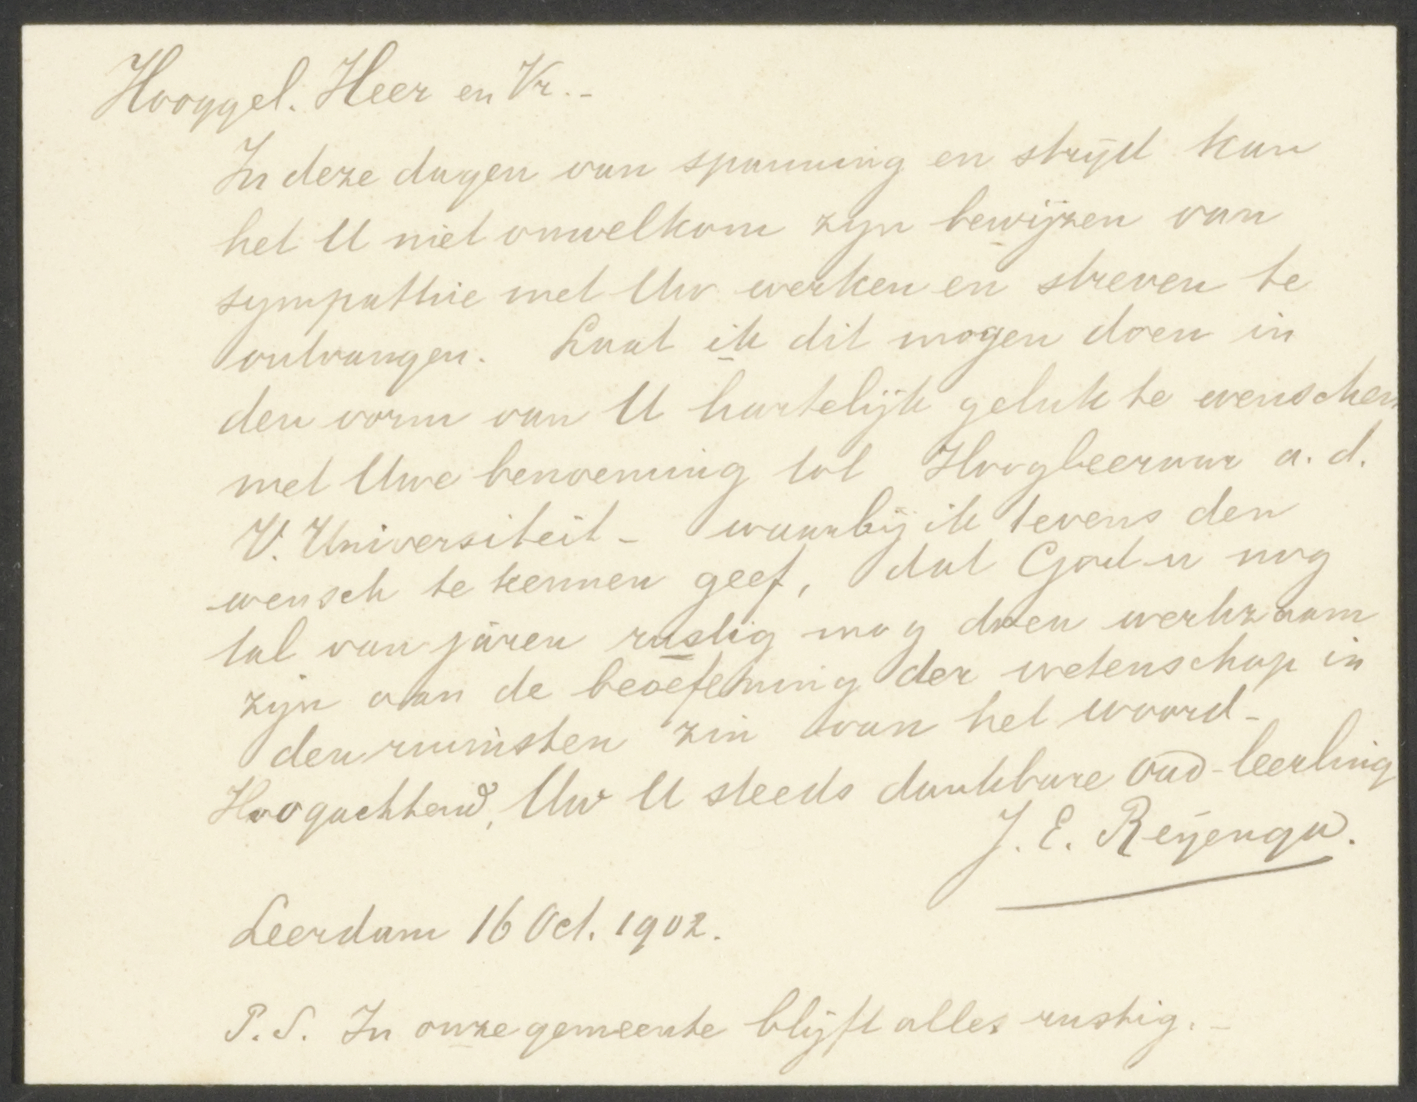 Hooggel. Heer en Vr. -
In deze dagen van spanning en strijd kan
het U niet onwelkom zijn bewijzen van
sympathie met Uw werken en streven te
ontvangen. Laat ik dit mogen doen in
den vorm van U hartelijk geluk te wenschen
met Uwe benoeming tot Hoogleeraar a. d.
V. Universiteit - waarbij ik tevens den
wensch te kennen geef, dat God u nog
tal van jaren rustig mag doen werkzaam
zijn aan de beoefening der wetenschap in
den ruimsten zin van het woord -
Hoogachtend, Uw U steeds dankbare oud-leerling
J. E. Reyenga.
Leerdam 16 Oct. 1902.
P. S. In onze gemeente blijft alles rustig. -